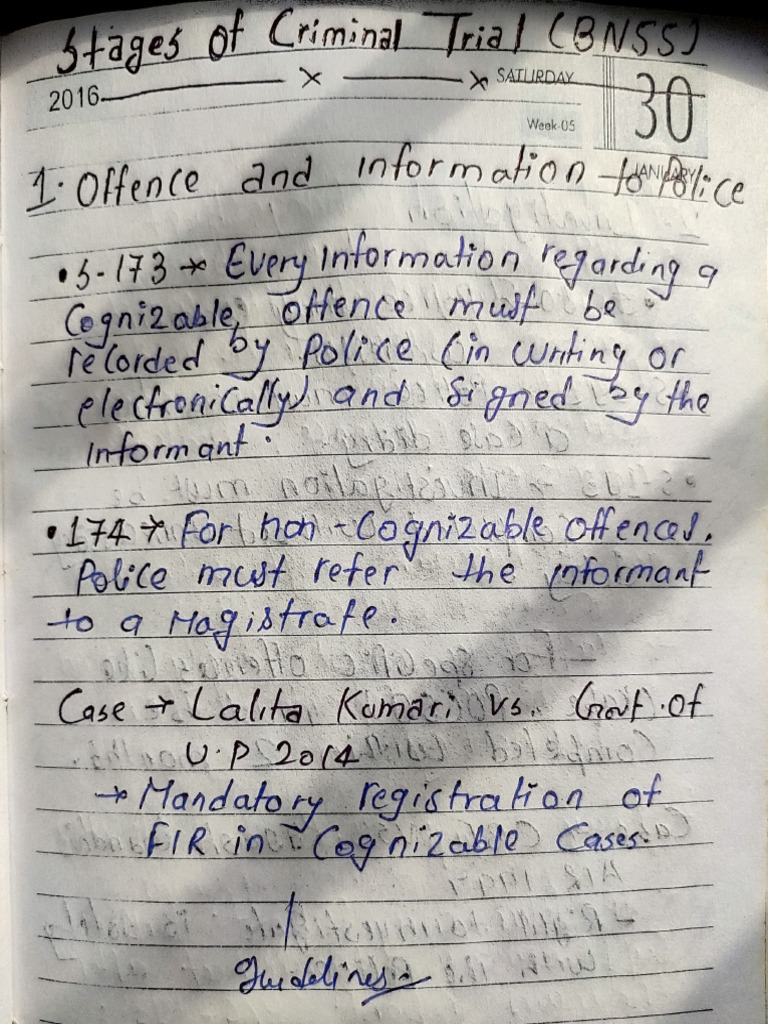 Stages of Criminal Trial (BNSS)
2016 x x SATURDAY 30
Week-05
JANUARY
1. Offence and information to Police
• S-173 → Every Information regarding a
Cognizable, offence must be
recorded by Police (in writing or
electronically) and signed by the
informant.
• 174 → For non-Cognizable offences.
Police must refer the informant
to a Magistrate.
Case → Lalita Kumari Vs. Govt. of
U.P 2014
→ Mandatory registration of
FIR in Cognizable Cases.
guidelines